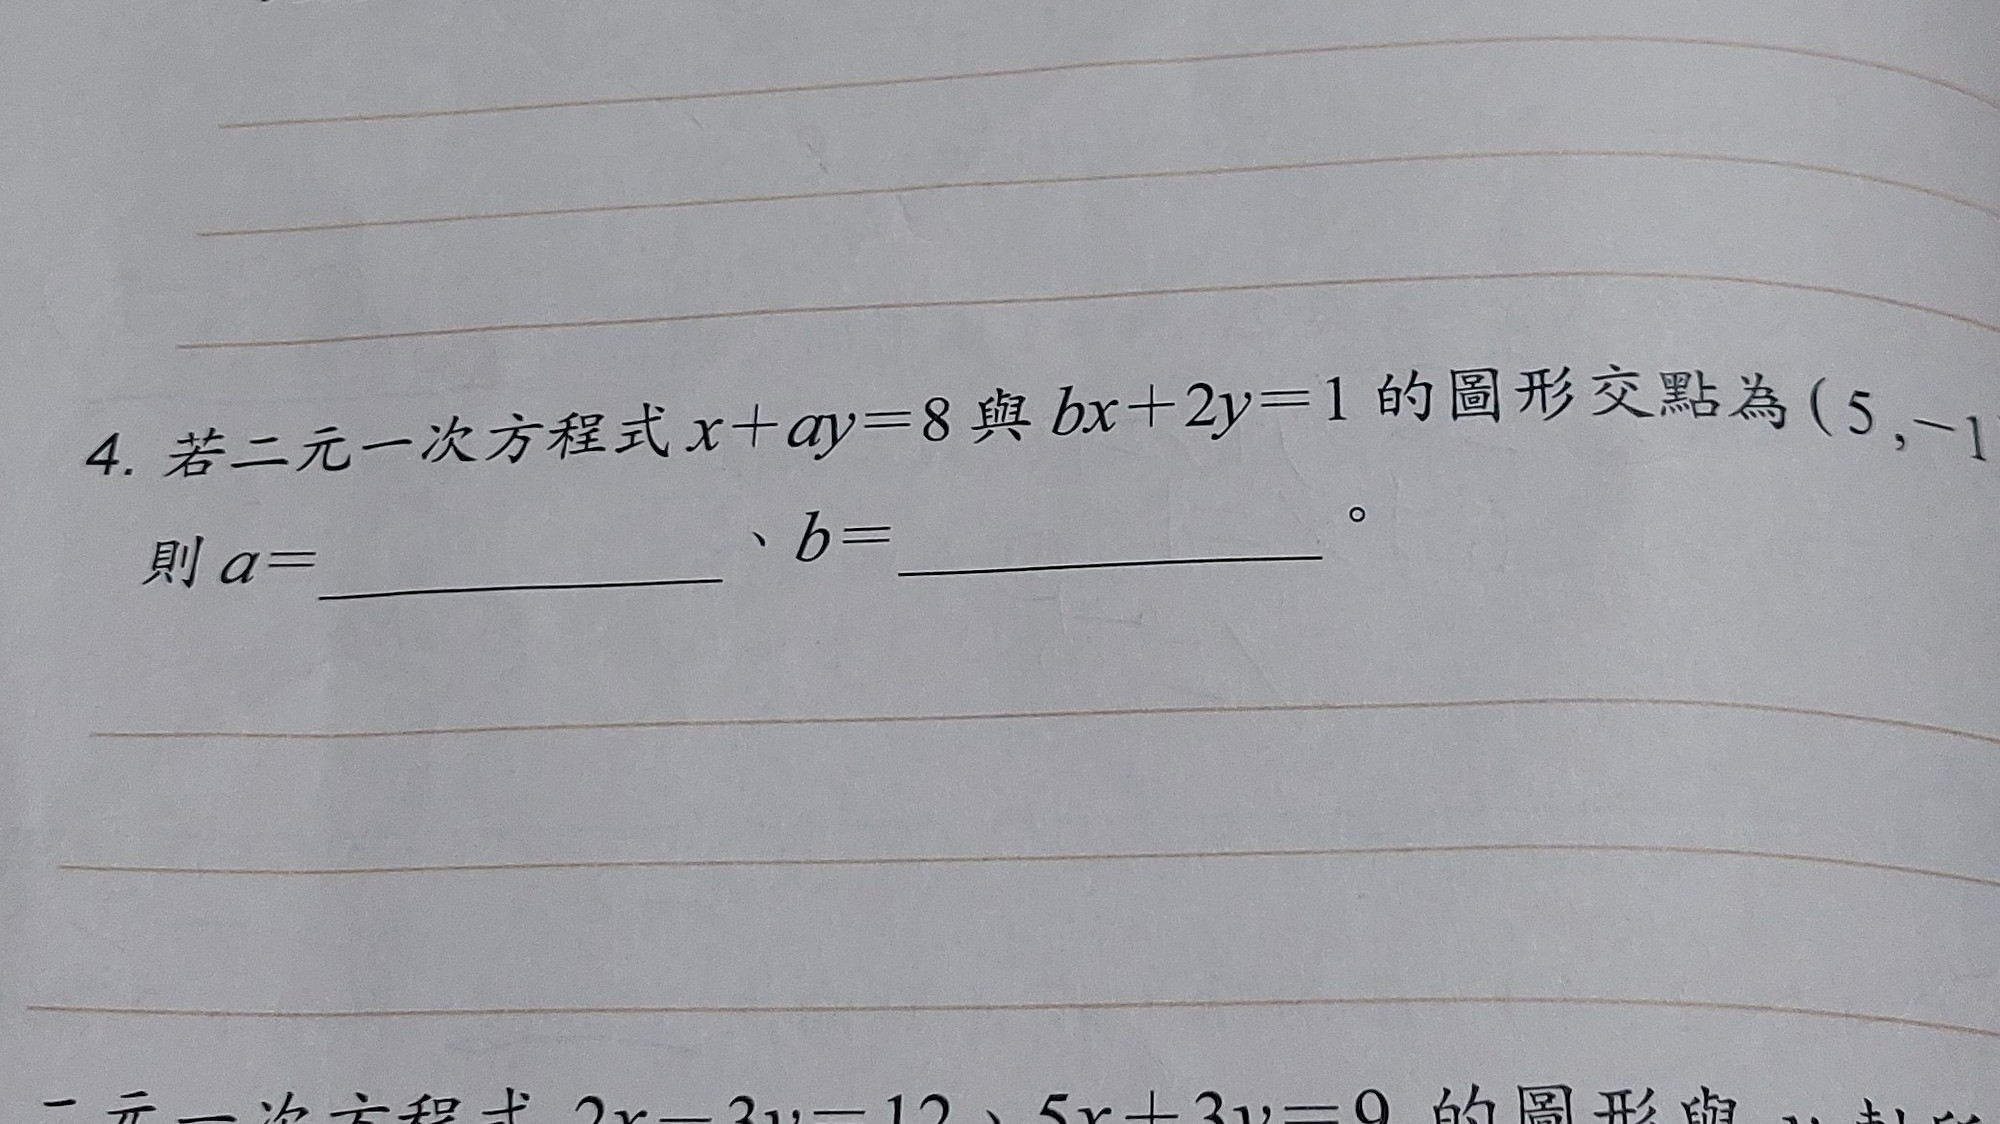 4. 若二元一次方程式 x+ay=8 與 bx+2y=1 的圖形交點為 ( 5 ,−1
則 a=＿＿＿＿＿＿、b=＿＿＿＿＿＿。
二元一次方程式 2x−3y=12、5x+3y=9 的圖形與 y